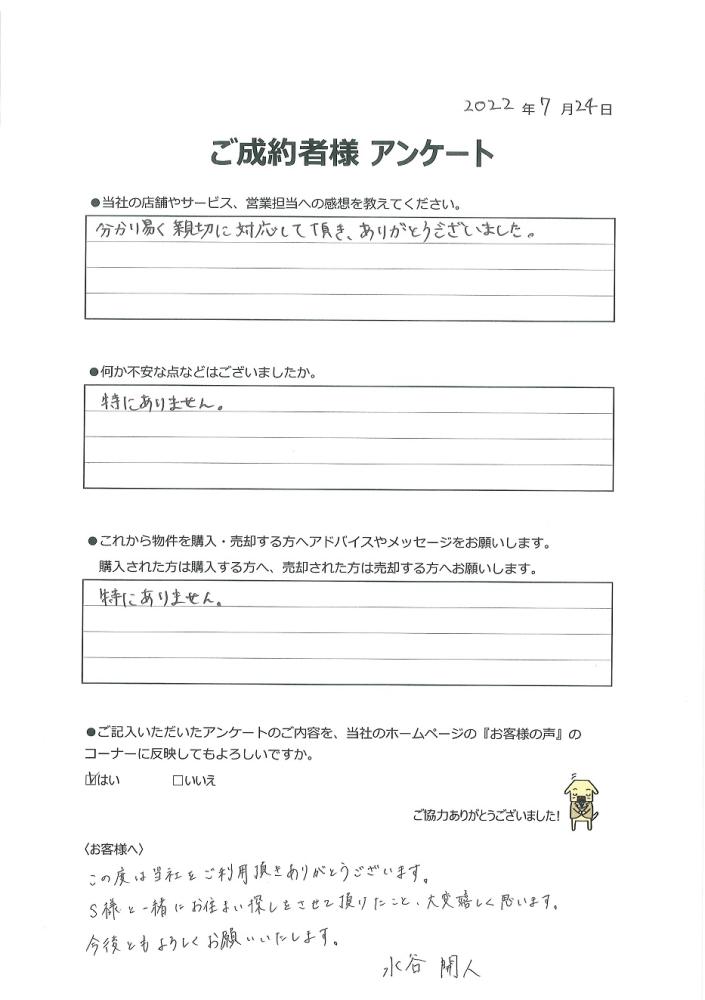 2022 年 7 月 24 日
ご成約者様 アンケート
●当社の店舗やサービス、営業担当への感想を教えてください。
分かり易く親切に対応して頂き、ありがとうございました。
●何か不安な点などはございましたか。
特にありません。
●これから物件を購入・売却する方へアドバイスやメッセージをお願いします。
購入された方は購入する方へ、売却された方は売却する方へお願いします。
特にありません。
●ご記入いただいたアンケートのご内容を、当社のホームページの『お客様の声』の
コーナーに反映してもよろしいですか。
☑はい □いいえ
ご協力ありがとうございました!
〈お客様へ〉
この度は当社をご利用頂きありがとうございます。
S様と一緒にお住まい探しをさせて頂けたこと、大変嬉しく思います。
今後ともよろしくお願いいたします。
水谷 開人